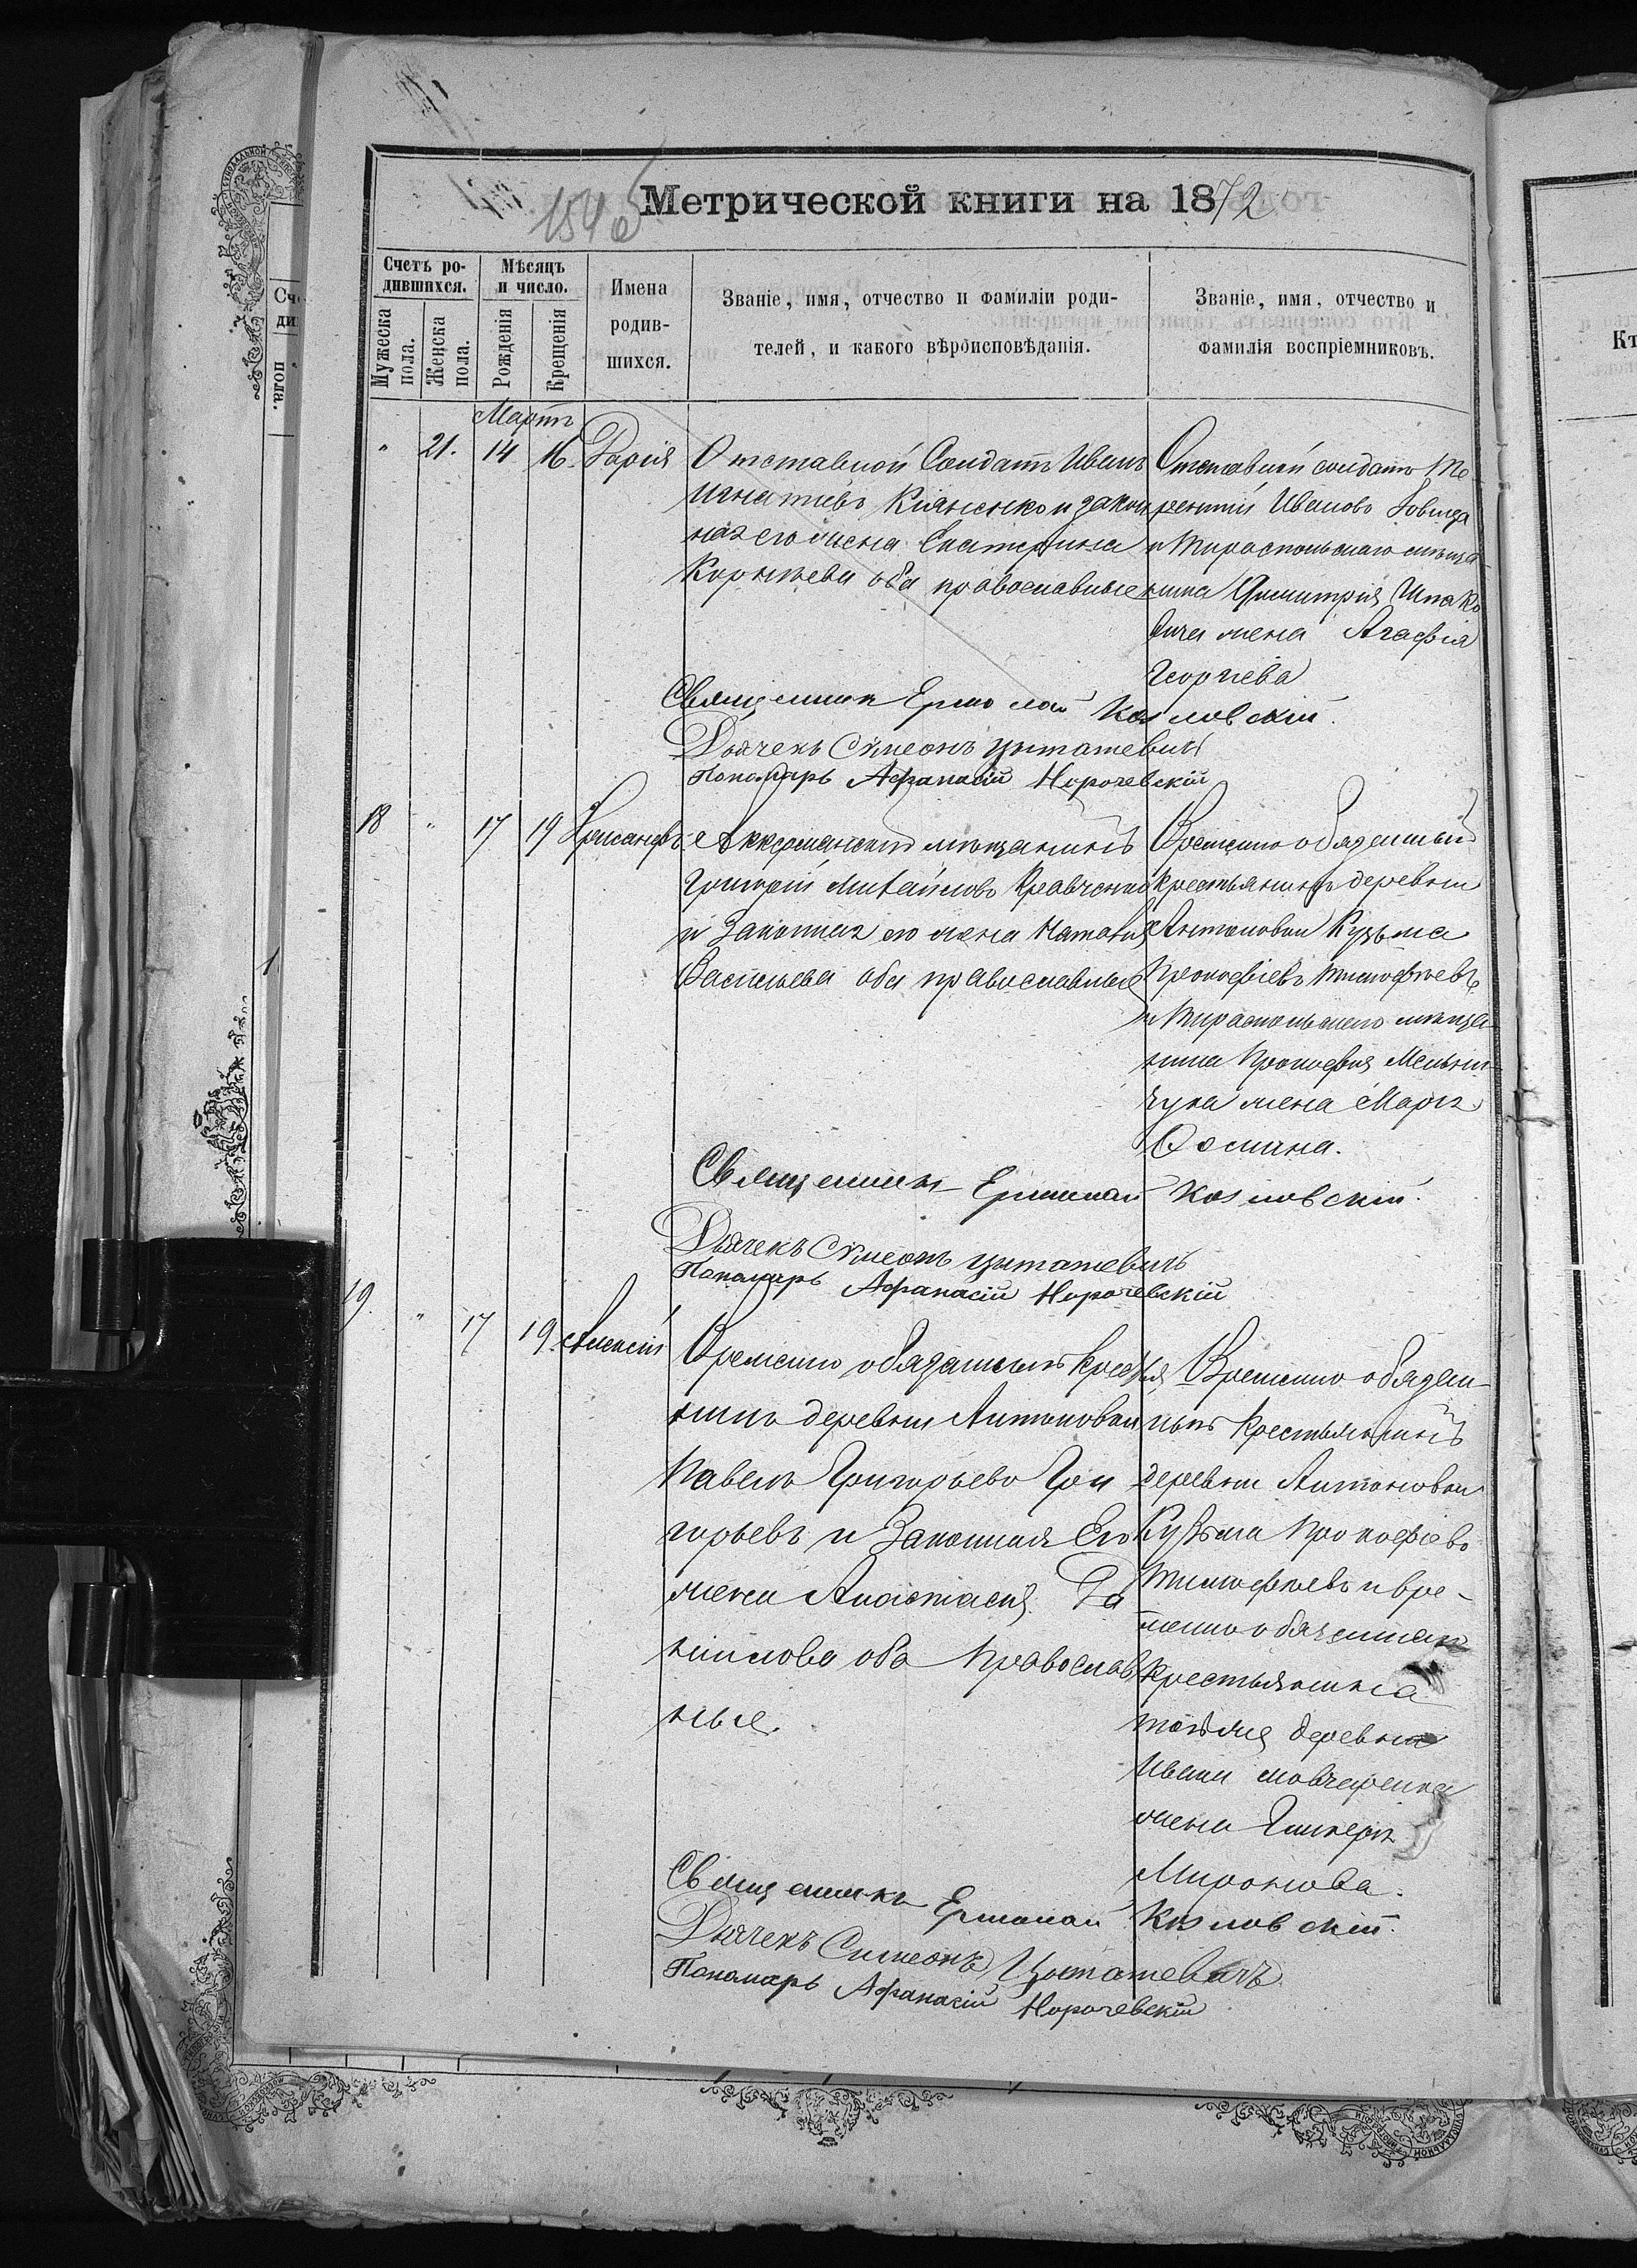 Метрической книги на 1872
Счетъ ро-
дившихся.
Мужеска пола.
Женска пола.
Мѣсяцъ
и число.
Рожденія
Крещенія
Имена
родив-
шихся.
Званіе, имя, отчество и фамиліи роди-
телей, и какого вѣроисповѣданія.
Званіе, имя, отчество и
фамилія воспріемниковъ.
Мартъ
" 21. 14 16. Дарія
Отставной Солдатъ Иванъ
Игнатіевъ Кіяненко и закон
ная его жена Екатерина
Корнѣева оба православные
Отставной солдатъ Те
рентій Ивановъ
и Тираспольскаго мѣща
нина Димитрія Шпако
вича жена Агафія
Георгіева
Священникъ Ермолай Козловскій.
Дьячекъ Сѵмеонъ Цытатевичъ
Пономарь Афанасій Норочевскій
18 " 17 19 Хрисанфъ
Аккерманскій мѣщанинъ
Григорій Михайловъ Кравченко
и Законная его жена Наталія
Васильева оба православные
Временно обязанный
крестьянинъ деревни
Антоновки Кузьма
Прокофіевъ Тимофѣевъ
и Тираспольскаго мѣща-
нина Прокофія Мельни-
чука жена Марія
Фомина.
Священникъ Ермолай Козловскій.
Дьячекъ Сѵмеонъ Цытатевичъ
Пономарь Афанасій Норочевскій
19. " 17 19. Алексій
Временно обязанный Крестья
нинъ деревни Антоновки
Павелъ Григорьевъ Гри
горьевъ и Законная Его
жена Анастасія Да
ніилова оба Православ
ные.
Временно обязан-
ный Крестьянинъ
деревни Антоновки
Кузьма Прокофіевъ
Тимофѣевъ и вре-
менно обязаннаго
Крестьянина
тойже деревни
Ивана Мовчаренка
жена Гликерія
Миронова.
Священникъ Ермолай Козловскій.
Дьячекъ Симеонъ Цытатевичъ
Пономарь Афанасій Норочевскій